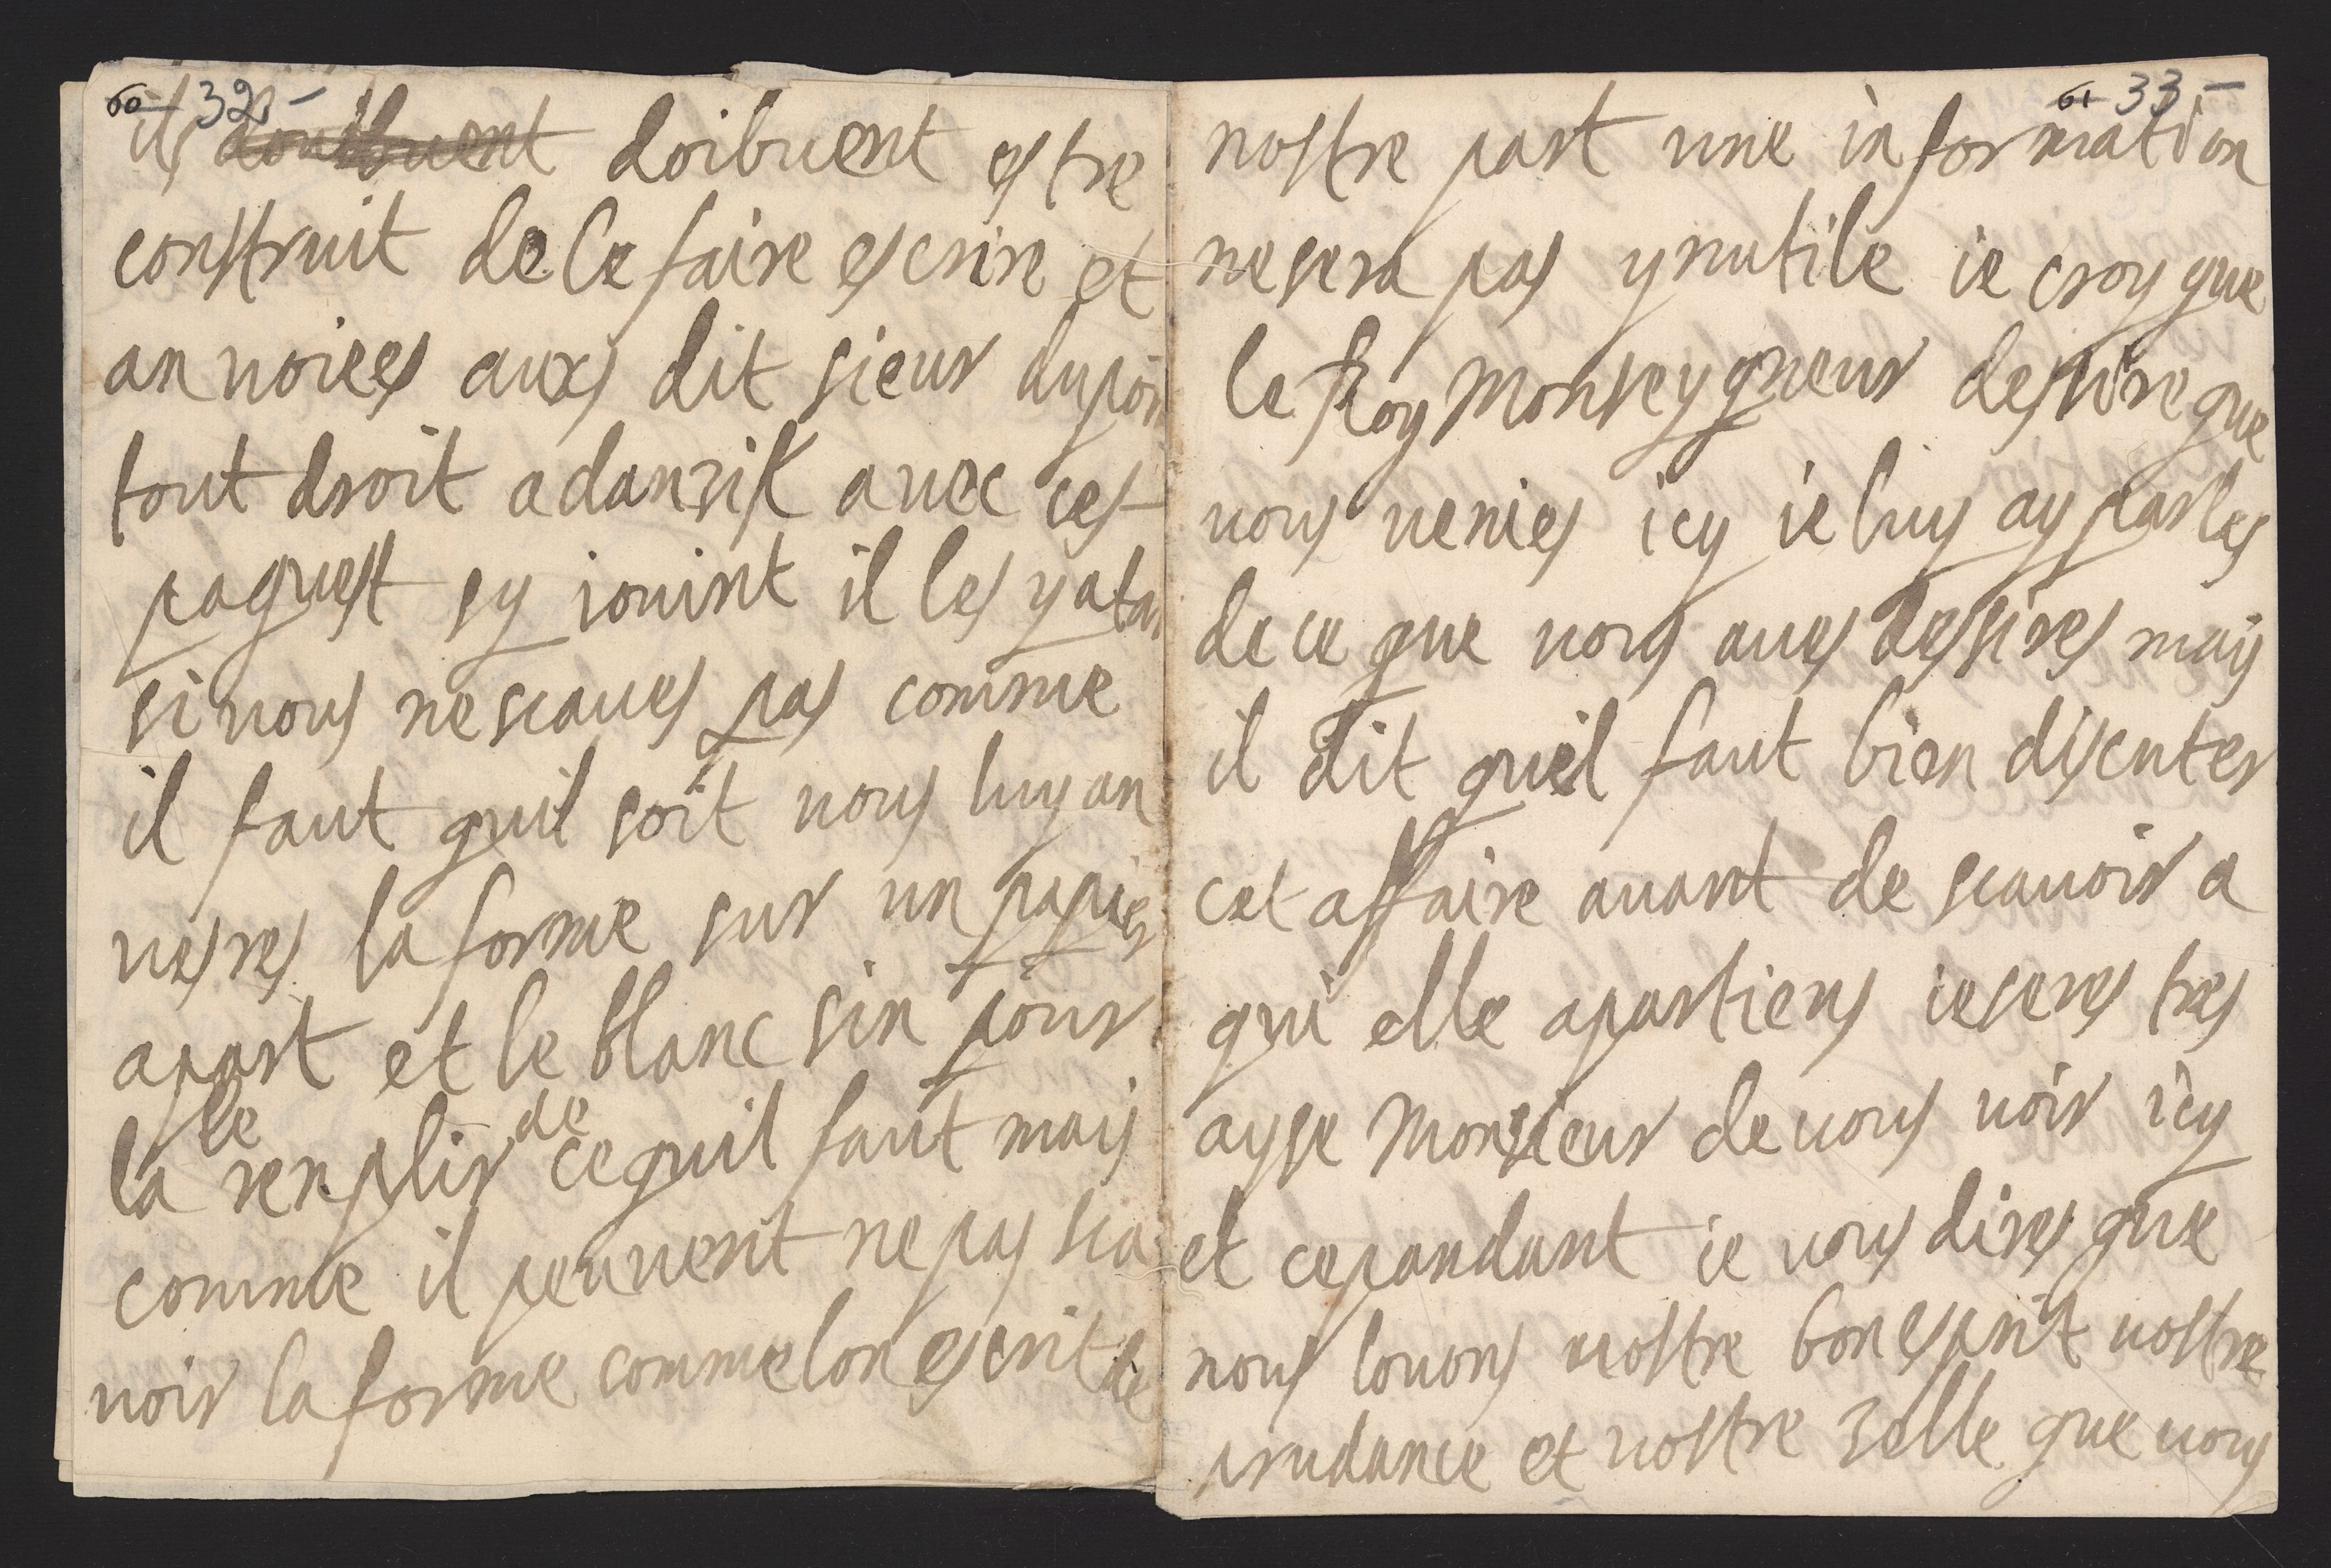 60 32 -
ils doibuent estre
construit de le faire escrire et
an uoiees auxs dit sieur dupon
tout droit a danzik auec ces
paquest sy iouint il les y atan
si uous ne scaues pas comme
il faut quil soit uous luy an
uesres la forme sur un papier
apart et le blanc sin pour
le de
la renplir ce quil faut mais
comme il peuuent ne pas sca
uoir la forme comme lon escrit de
61 33 -
nostre part une in formation
ne sera pas ynutile ie croy que
le Roy Monseygneur desire que
uous uenies icy ie luy ay parles
de ce que uous aues dessires mais
il dit quil faut bien discuter
cet affaire auant de scauoir a
qui elle apartiens ie seres tres
ayse Monsieur de uous uoir icy
et cepandant ie uous dires que
nous louons uostre bon esprit uostre
prudance et uostre zelle que uous